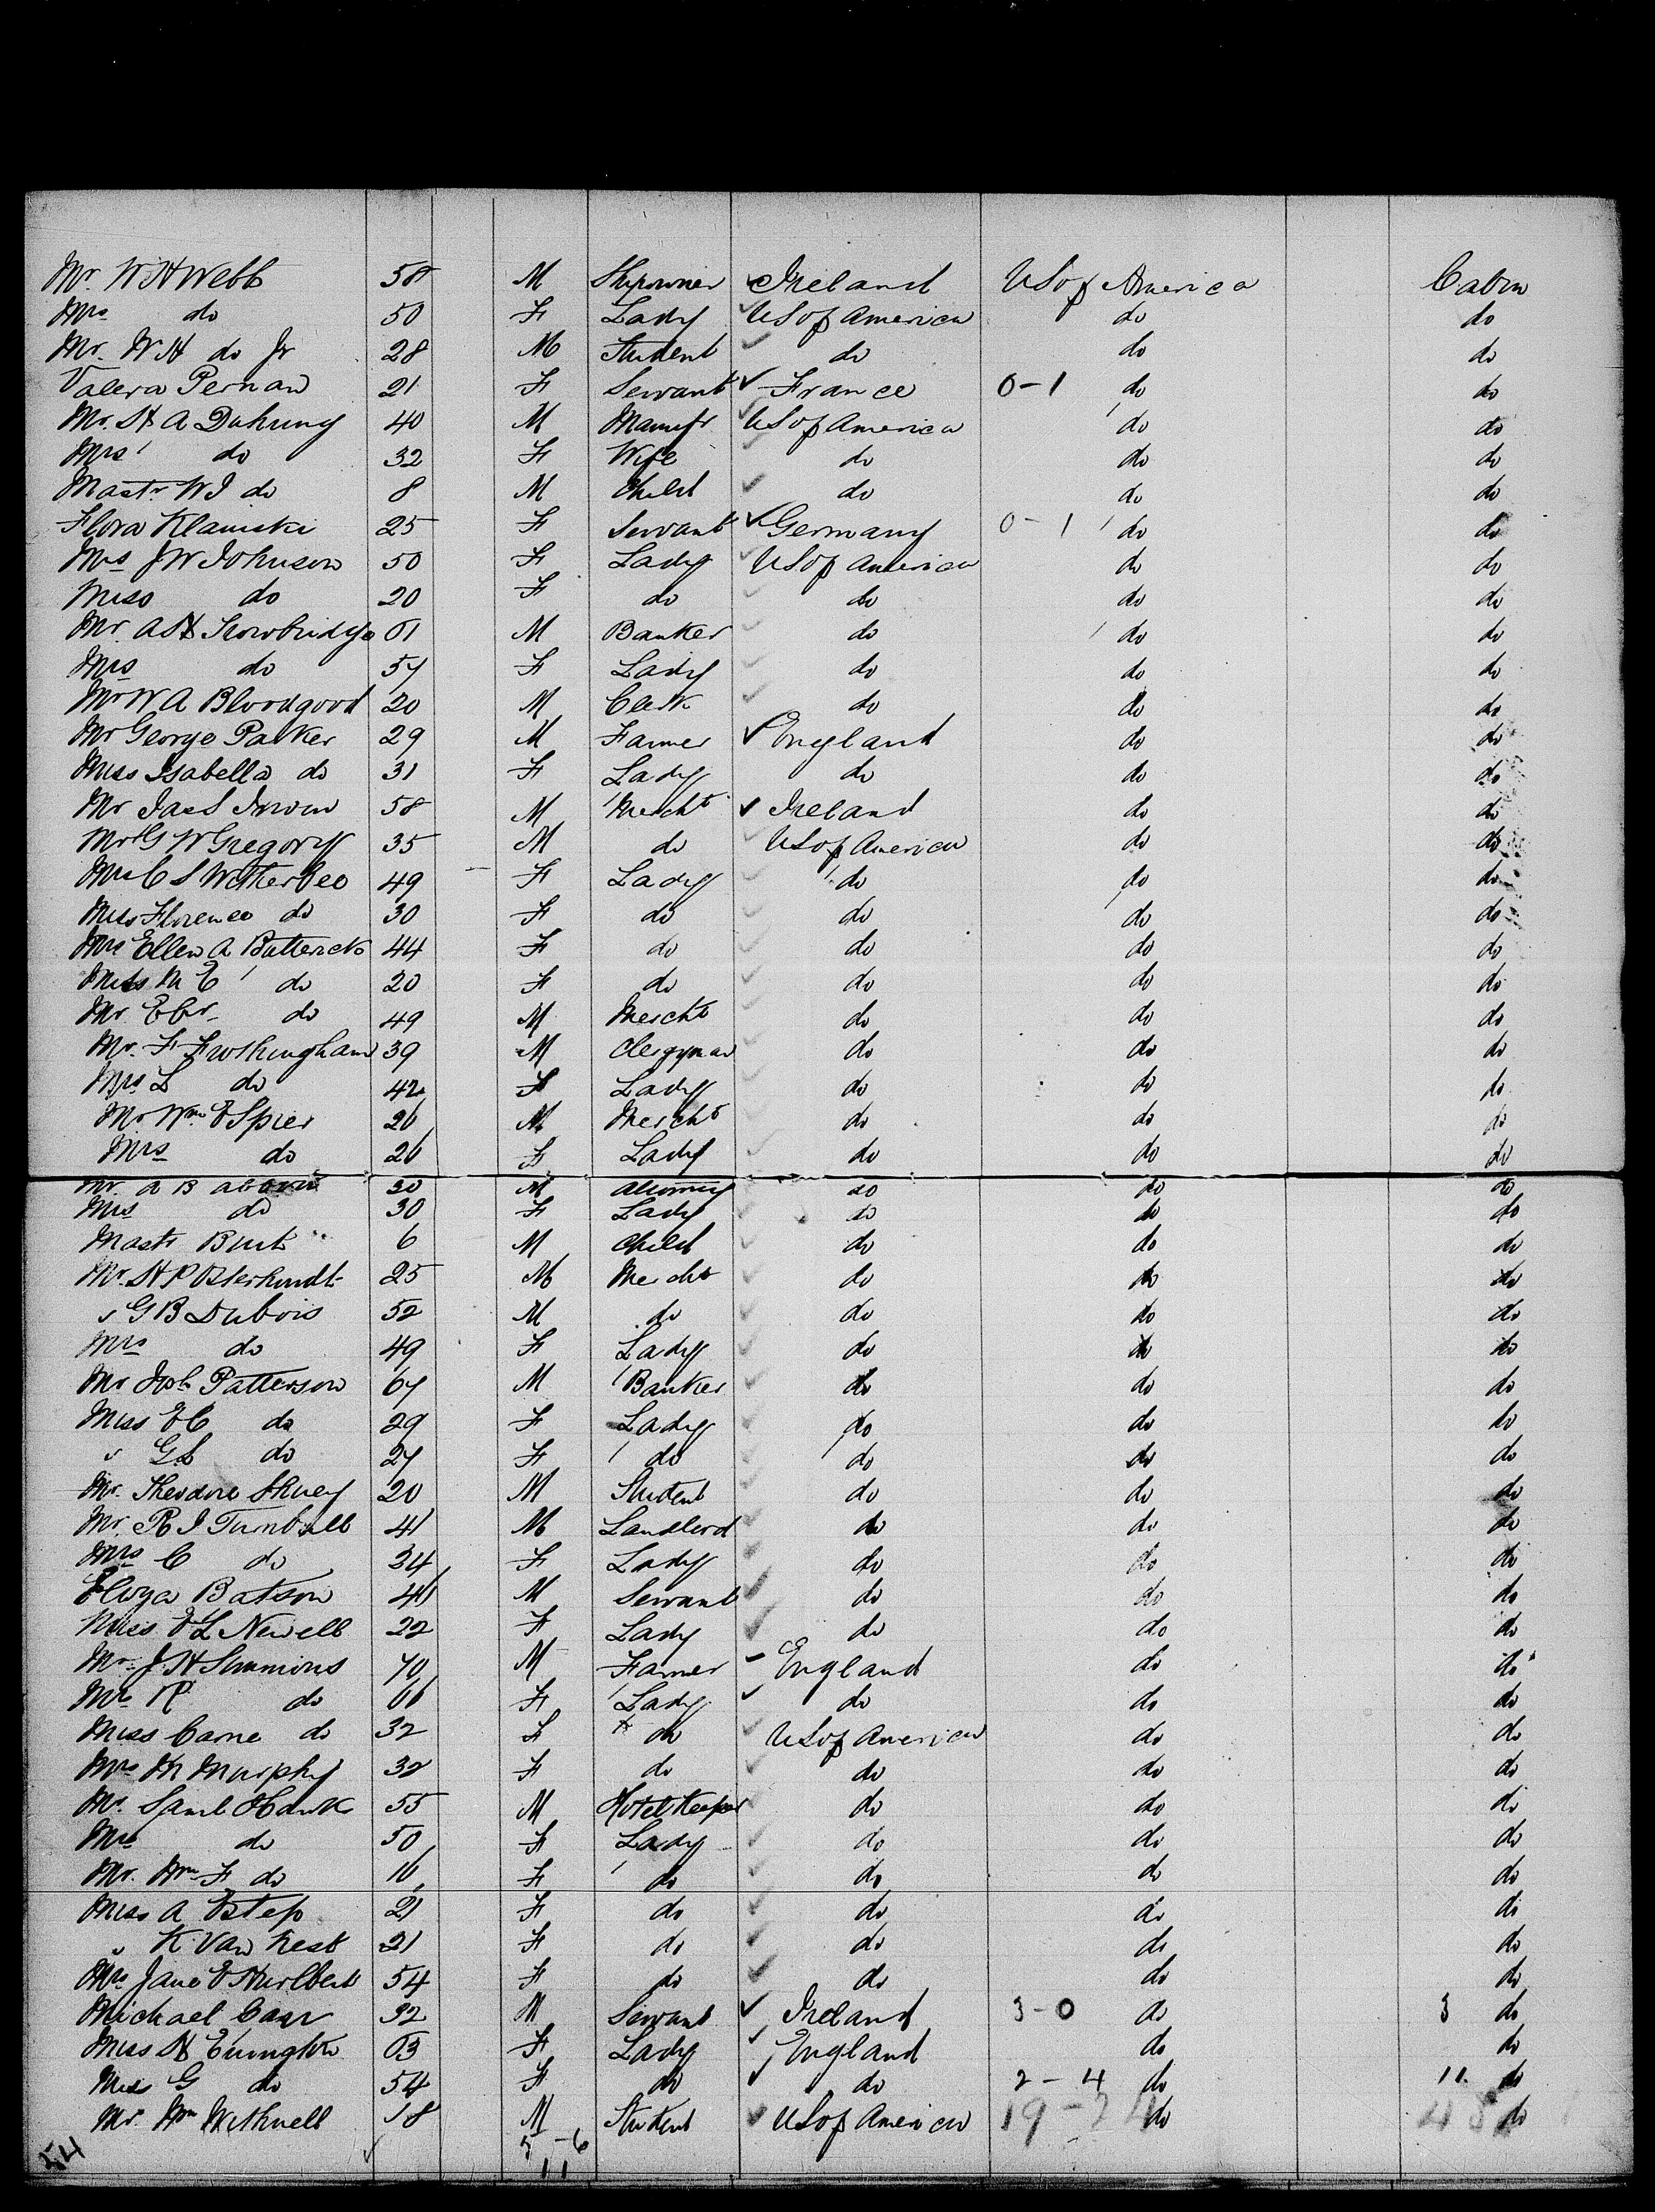 Mr. W H Webb 58 M Shipowner Ireland US of America Cabin
Mrs do 50 F Lady US of America do do
Mr. W H do Jr 28 M Student do do do
Valera Pernan 21 F Servant France 0-1 do do
Mr. H A Duhring 40 M Manufr US of America do do
Mrs do 32 F Wife do do do
Mastr W I do 8 M Child do do do
Flora Klaniski 25 F Servant Germany 0-1 do do
Mrs J W Johnson 50 F Lady US of America do do
Miss do 20 F do do do do
Mr. A H Trowbridge 61 M Banker do do do
Mrs do 57 F Lady do do do
Mr W A Bloodgood 20 M Clerk do do do
Mr George Parker 29 M Farmer England do do
Miss Isabella do 31 F Lady do do do
Mr Jas S Irwin 58 M Mercht Ireland do do
Mr G W Gregory 35 M do US of America do do
Mrs C S Witherbee 49 F Lady do do do
Miss Florence do 30 F do do do do
Mrs Ellen A Butterick 44 F do do do do
Miss M E do 20 F do do do do
Mr. Ebr do 49 M Mercht do do do
Mr. F Frothingham 39 M Clergyman do do do
Mrs L do 42 F Lady do do do
Mr Wm E Spier 26 M Mercht do do do
Mrs do 26 F Lady do do do
Mr. A B 30 M Attorney do do do
Mrs do 30 F Lady do do do
Mastr Burt 6 M Child do do do
Mr. H P Osterhoudt 25 M Mercht do do do
" G B Dubois 52 M do do do do
Mrs do 49 F Lady do do do
Mr Jos Patterson 67 M Banker do do do
Miss E C do 29 F Lady do do do
" G L do 27 F do do do do
Mr. Theodore Shuey 20 M Student do do do
Mr. R I Turnbull 41 M Landlord do do do
Mrs C do 34 F Lady do do do
Batson M Servant do do do
Miss E L Newell 22 F Lady do do do
Mr. J. H Simmons 70 M Farmer England do do
Mrs R do 66 F Lady do do do
Miss Carrie do 32 F do US of America do do
Mrs M Murphy 32 F do do do do
Mr. Saml Hauk 55 M Hotel Keeper do do do
Mrs do 50 F Lady do do do
Mr. Wm F do 16 F do do do do
Miss A Estep 21 F do do do do
" K Van Nest 21 F do do do do
Mrs Jane E Hurlbert 54 F do do do do
Michael Carr 32 M Servant Ireland 3-0 do 3 do
Miss H Errington 63 F Lady England do do
Miss G do 54 F do do 2-4 do 11 do
Mr. Wm Withnell 18 M Student US of America 19-24 do 43 do
54 5-6
11